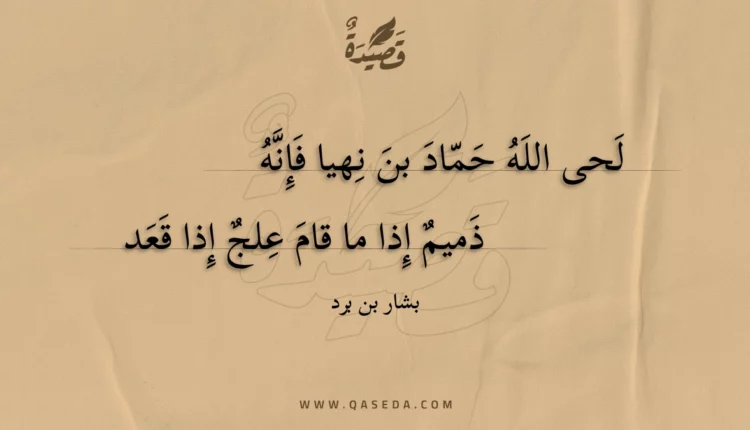 قَصِيْدَةٌ
لَحى اللَهُ حَمّادَ بنَ نِهيا فَإِنَّهُ
ذَميمٌ إِذا ما قامَ عِلجٌ إِذا قَعَد
بشار بن برد
WWW.QASEDA.COM